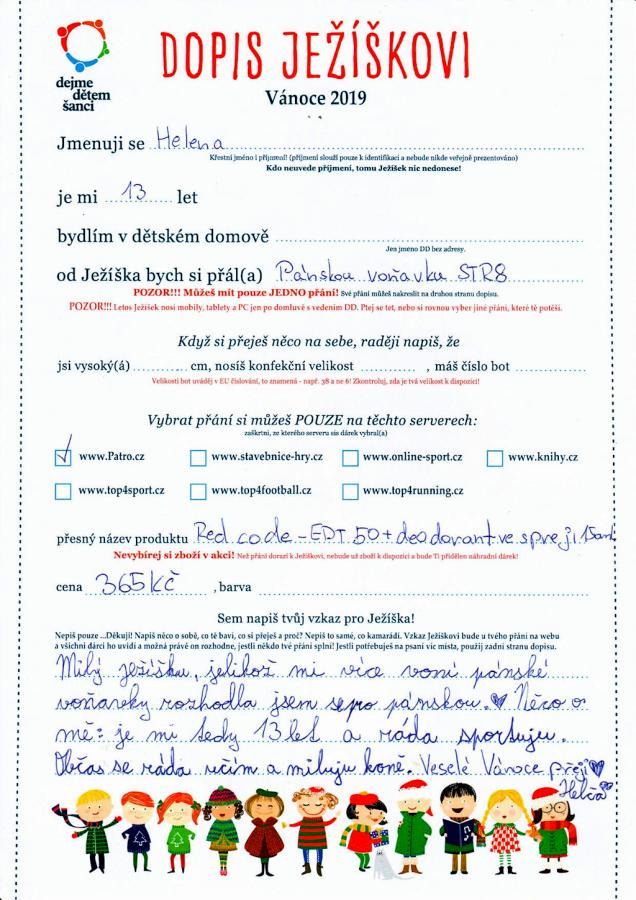 dejme
dětem
šanci
DOPIS JEŽÍŠKOVI
Vánoce 2019
Jmenuji se Helena
Křestní jméno i příjmení! (příjmení slouží pouze k identifikaci a nebude nikde veřejně prezentováno)
Kdo neuvede příjmení, tomu Ježíšek nic nedonese!
je mi 13 let
bydlím v dětském domově
Jen jméno DD bez adresy.
od Ježíška bych si přál(a) Pánskou voňavku STR8
POZOR!!! Můžeš mít pouze JEDNO přání! Své přání můžeš nakreslit na druhou stranu dopisu.
POZOR!!! Letos Ježíšek nosí mobily, tablety a PC jen po domluvě s vedením DD. Ptej se tet, nebo si rovnou vyber jiné přání, které tě potěší.
Když si přeješ něco na sebe, raději napiš, že
jsi vysoký(á) cm, nosíš konfekční velikost , máš číslo bot
Velikosti bot uváděj v EU číslování, to znamená - např. 38 a ne 6! Zkontroluj, zda je tvá velikost k dispozici!
Vybrat přání si můžeš POUZE na těchto serverech:
zaškrtni, ze kterého serveru sis dárek vybral(a)
www.Patro.cz www.stavebnice-hry.cz www.online-sport.cz www.knihy.cz
www.top4sport.cz www.top4football.cz www.top4running.cz
přesný název produktu Red code - EDT 50 + deodorant ve spreji 15oml
Nevybírej si zboží v akci! Než přání dorazí k Ježíškovi, nebude už zboží k dispozici a bude Ti přidělen náhradní dárek!
cena 365 Kč , barva
Sem napiš tvůj vzkaz pro Ježíška!
Nepiš pouze ...Děkuji! Napiš něco o sobě, co tě baví, co si přeješ a proč? Nepiš to samé, co kamarádi. Vzkaz Ježíškovi bude u tvého přání na webu
a všichni dárci ho uvidí a možná právě on rozhodne, jestli někdo tvé přání splní! Jestli potřebuješ na psaní víc místa, použij zadní stranu dopisu.
Milý ježíšku, jelikož mi více voní pánské
voňaveky rozhodla jsem se pro pánskou.♥ Něco o
mě: je mi tedy 13 let a ráda sportuju.
Občas se ráda učím a miluju koně. Veselé Vánoce přeji♥
Helča